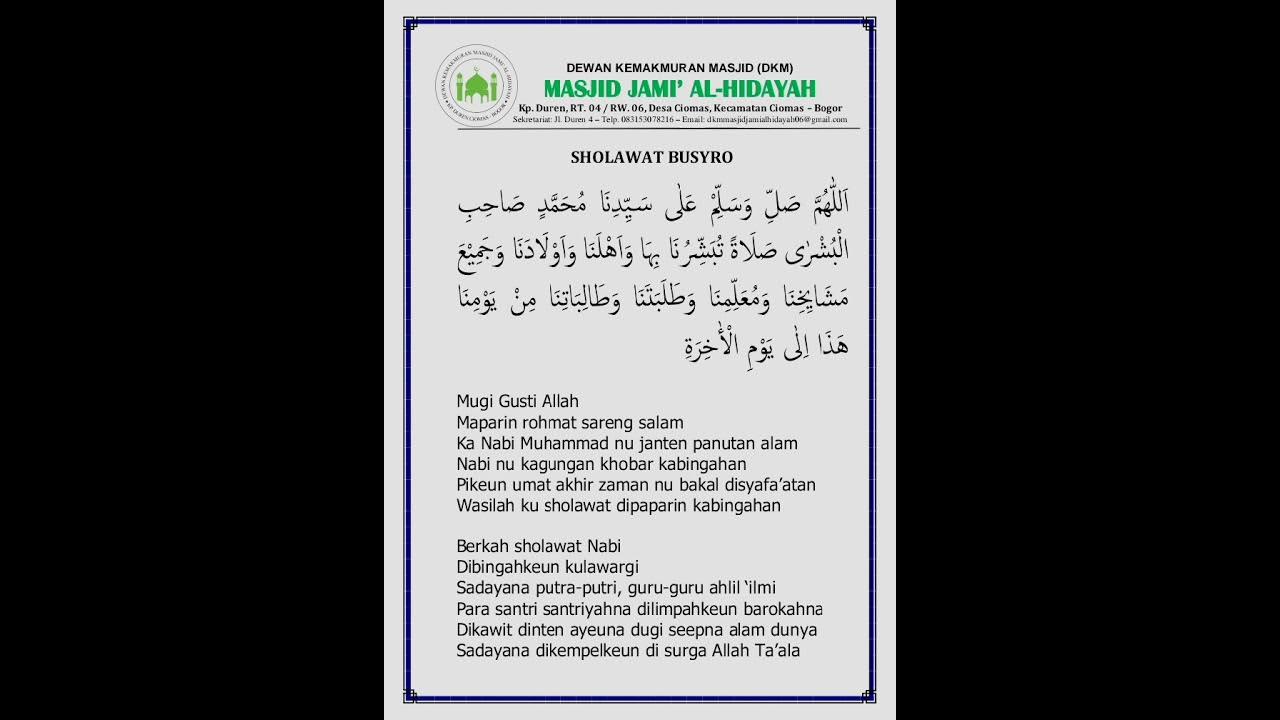 DEWAN KEMAKMURAN MASJID JAMI' AL-HIDAYAH
KP. DUREN CIOMAS - BOGOR
DEWAN KEMAKMURAN MASJID (DKM)
MASJID JAMI’ AL-HIDAYAH
Kp. Duren, RT. 04 / RW. 06, Desa Ciomas, Kecamatan Ciomas – Bogor
Sekretariat: Jl. Duren 4 – Telp. 083153078216 – Email: dkmmasjidjamialhidayah06@gmail.com
SHOLAWAT BUSYRO
اَللّٰهُمَّ صَلِّ وَسَلِّمْ عَلٰى سَيِّدِنَا مُحَمَّدٍ صَاحِبِ
الْبُشْرٰى صَلَاةً تُبَشِّرُنَا بِهَا وَاَهْلَنَا وَاَوْلَادَنَا وَجَمِيْعَ
مَشَايِخِنَا وَمُعَلِّمِنَا وَطَلَبَتَنَا وَطَالِبَاتِنَا مِنْ يَوْمِنَا
هَذَا اِلٰى يَوْمِ الْأٰخِرَةِ
Mugi Gusti Allah
Maparin rohmat sareng salam
Ka Nabi Muhammad nu janten panutan alam
Nabi nu kagungan khobar kabingahan
Pikeun umat akhir zaman nu bakal disyafa’atan
Wasilah ku sholawat dipaparin kabingahan
Berkah sholawat Nabi
Dibingahkeun kulawargi
Sadayana putra-putri, guru-guru ahlil ‘ilmi
Para santri santriyahna dilimpahkeun barokahna
Dikawit dinten ayeuna dugi seepna alam dunya
Sadayana dikempelkeun di surga Allah Ta’ala